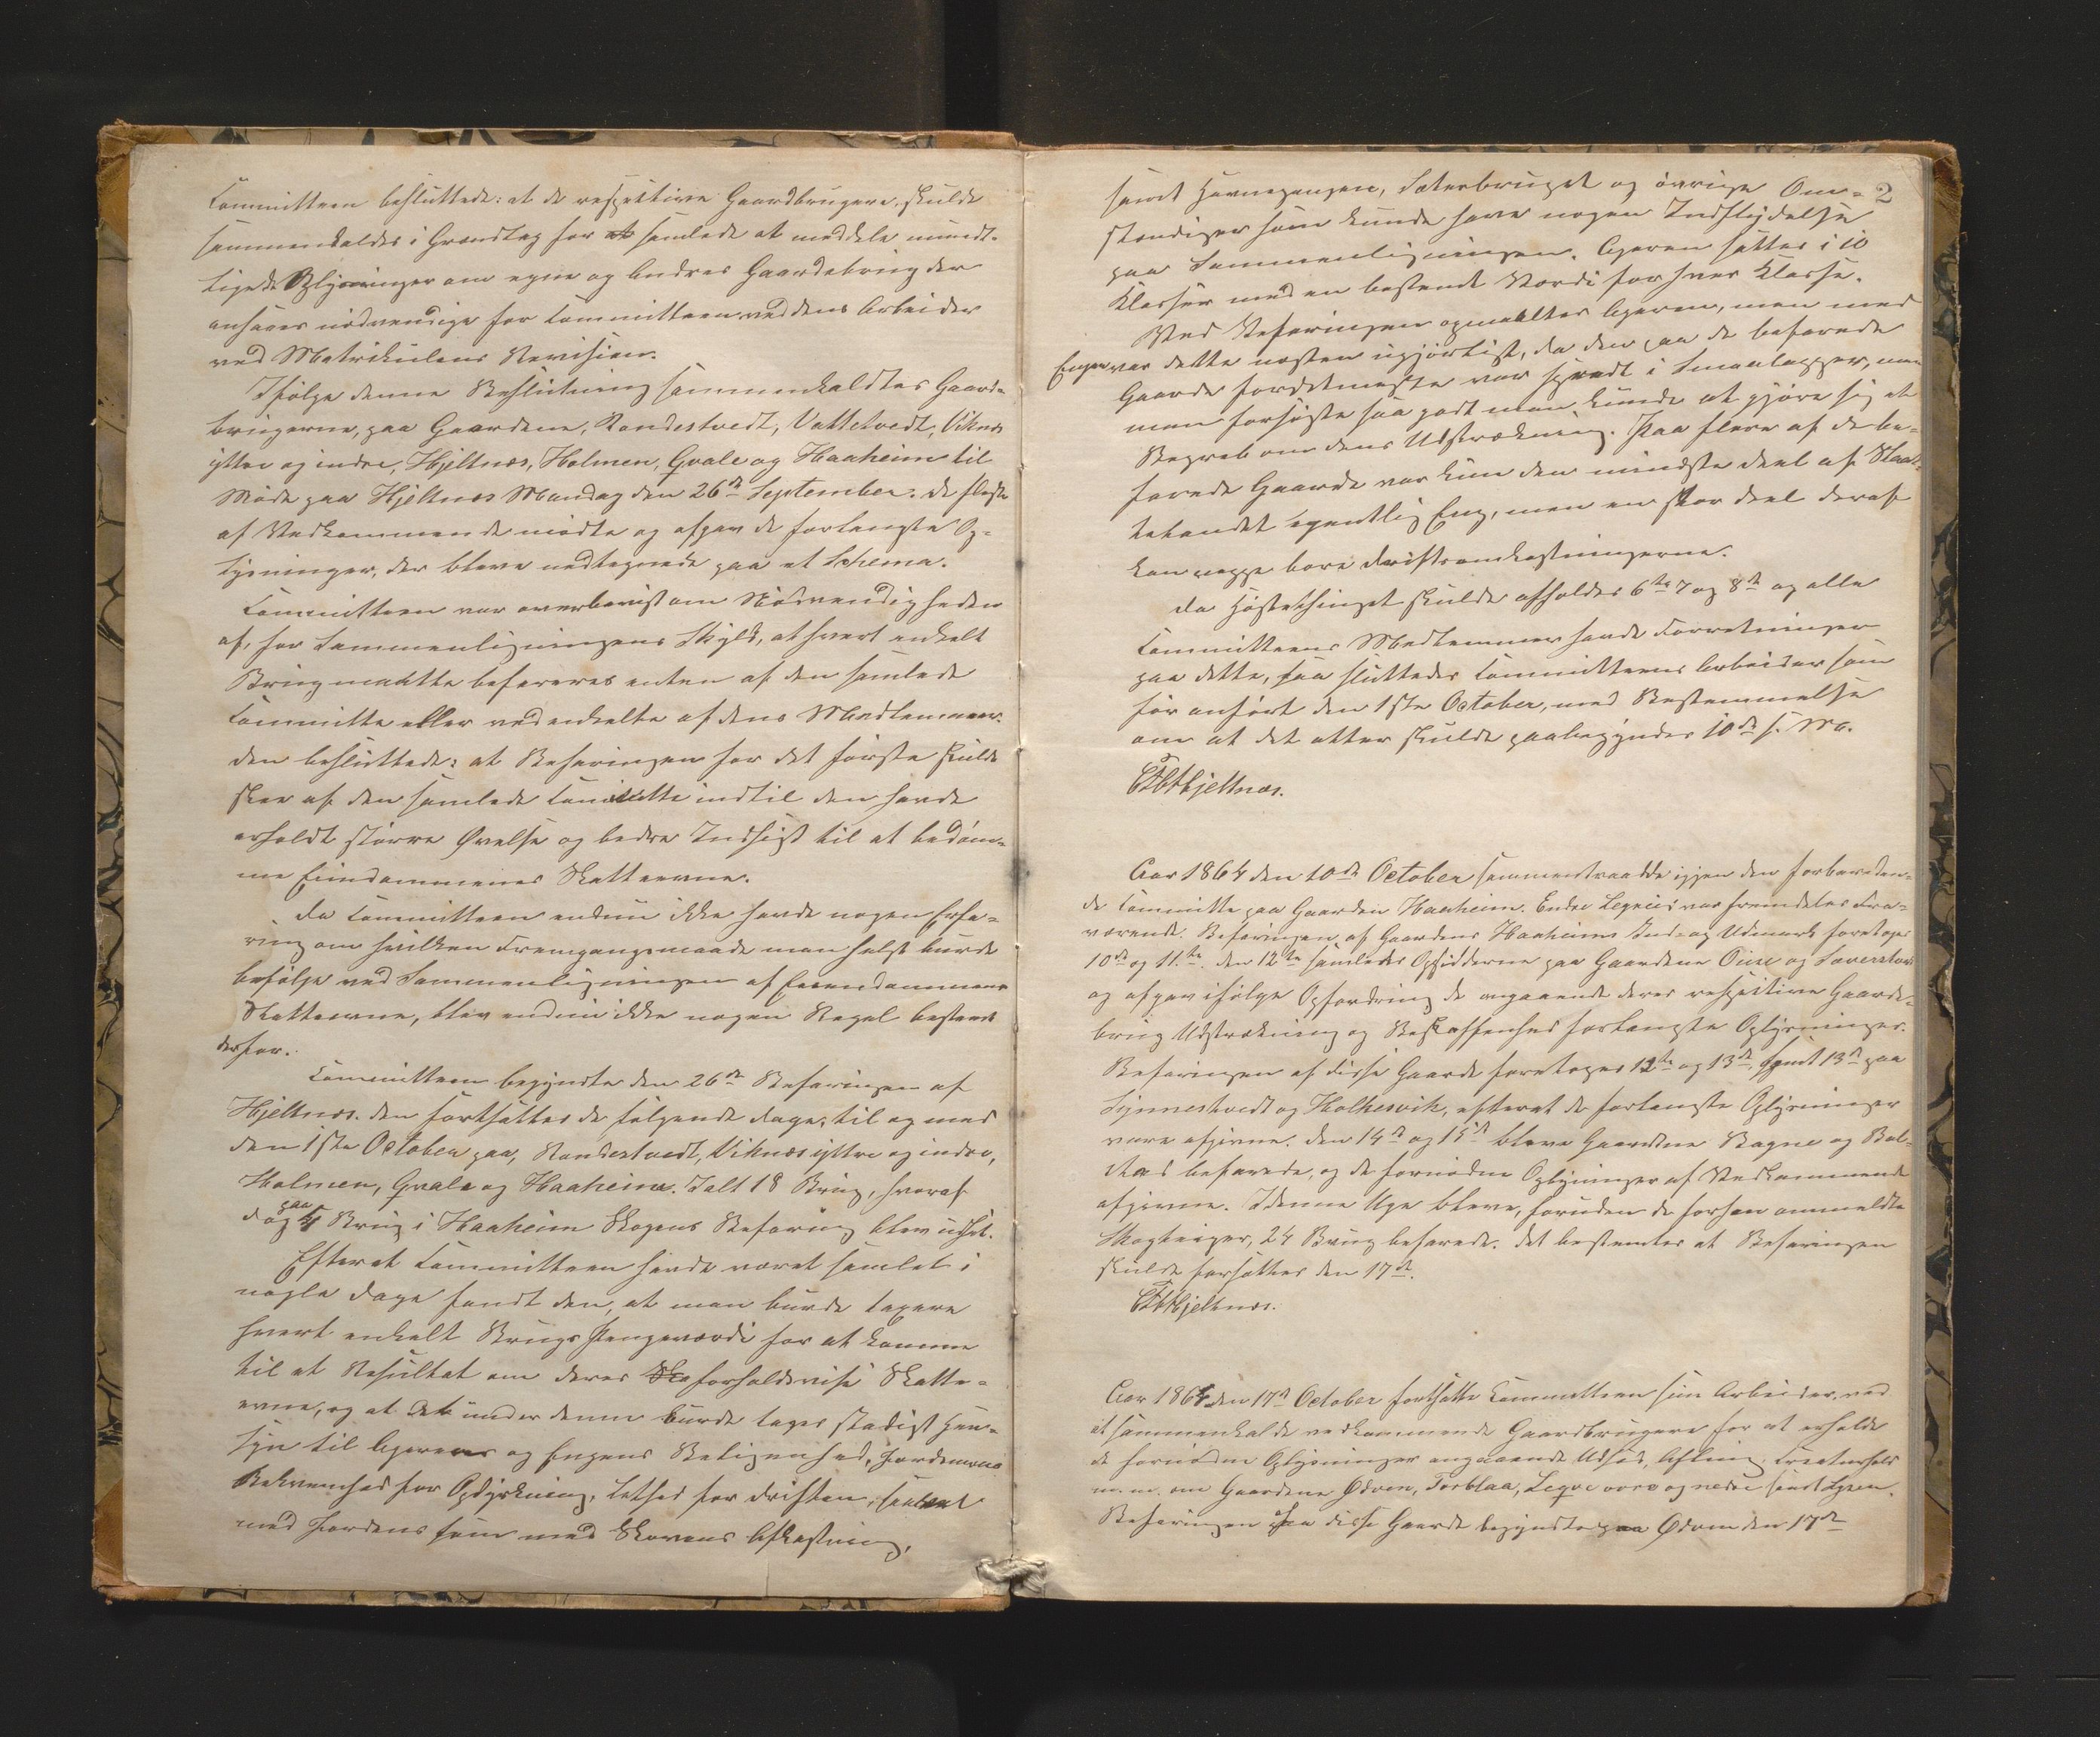 Committeen besluttede: at de respective Gaardbrugere skulde
sammenkaldes i Grændlag for at samlede at meddele mundt-
lige Oplysninger om egne og Andres Gaardebrug der
ansaaes nödvendige for Committeen ved dens Arbeider
ved Matrikulens Revision.
Ifölge denne Beslutning sammenkaldtes Gaard-
brugerne, paa Gaardene, Randestvedt, Vattetvedt, Viknes
yttre og indre, Hjeltnæs, Holmen, Qvale og Haaheim til
Möde paa Hjeltnæs Mandag den 26de September. De fleste
af Vedkommende mödte og afgav de forlangte Op-
lysninger, der bleve nedtegnede paa et Schema.
Committeen var overbevist om Nödvendigheden
af, for Sammenligningens Skyld, at hvert enkelt
Brug maatte befareres enten af den samlede
Committe eller ved enkelte af dens Medlemmer.
den besluttede: at Befaringen for det förste skulde
skee af den samlede Committe indtil den havde
erholdt större Øvelse og bedre Indsigt til at bedöm-
me Eiendommenes Skatteevne.
Da Committeen endnu ikke havde nogen Erfa-
ring om hvilken Fremgangsmaade man helst burde
befölge ved Sammenligningen af Eiendommenes
Skatteevne, blev endnu ikke nogen Regel bestemt
derfor.
Committeen begyndte den 26de Befaringen af
Hjeltnæs. den fortsattes de fölgende dage, til og med
den 1ste October paa, Randestvedt, Viknæs yttre og indre,
Holmen, Qvale og Haaheim. Ialt 18 Brug, hvoraf
dog paa 4 Brug i Haaheim Skogens Befaring blev udsat.
Efterat Committeen havde været samlet i
nogle Dage fandt den, at man burde taxere
hvert enkelt Brugs Pengeværdi for at komme
til et Resultat om deres forholdsvise Skatte-
evne, og at der under denne burde tages stadigt Hen-
syn til Agerens og Engens Beligenhed, Jordernes
Bekvemhed for Opdyrkning, Lethed for Driften, saavel
med Jordens som med Skovens Afkastning,
2
samt Havnegangen, Sæterbruget og övrige Om-
stændiger som kunde have nogen Indflydelse
paa Sammenligningen. Ageren sattes i 10
Klasser med en bestemt Værdi for hver Klasse.
Ved Befaringen opmaaltes Ageren, men med
Engen var dette næsten ugjörligt, da den paa de befarede
Gaarde fordetmeste var spredt i Smaalapper, men
man forsögte saa godt man kunde at gjöre sig et
Begreb om dens Udstrækning. Paa flere af de be-
farede Gaarde var kun den mindste deel af Slaat-
telandet egentlig Eng, men en stor deel deraf
kan neppe bære driftsomkostningerne.
da Höstethinget skulde afholdes 6te 7 og 8de og alle
Committeens Medlemmer havde Forretninger
paa dette, saa sluttedes Committeens Arbeider som
för anfört den 1ste October, med Bestemmelse
om at det atter skulde paabegyndes 10de s. M.
Hjeltnæs.
Aar 1864 den 10de October sammentraadde igjen den forbereden-
de Committe paa Gaarden Haaheim. Endre Leqvei var fremdeles fra-
værende. Befaringen af Gaardens Haaheims Ind- og Udmark foretoges
10de og 11te. den 12te samledes Opsidderne paa Gaardene Oure og Sæverstvei
og afgav ifölge Opfordring de angaaende deres respective Gaards-
brug Udstrækning og Beskaffenhed forlangte Oplysninger.
Befaringen af disse Gaarde foretoges 12te og 13de, samt 13de paa
Synnestvedt og Holkesvik, efterat de forlangte Oplysninger
vare afgivne. den 14de og 15de bleve Gaardene Bagne og Bol-
stad befarede, og de fornödne Oplysninger af Vedkommende
afgivne. I denne Uge bleve, foruden de forhen ommeldte
Skogteiger, 24 Brug befarede. det bestemtes at Befaringen
skulde forsættes den 17de.
Hjeltnæs.
Aar 1864 den 17de October fortsatte Committeen sine Arbeider, ved
at sammenkalde vedkommende Gaardbrugere for at erholde
de fornödne Oplysninger angaaende Udsæd, Avling, Creaturhold
m. m. om Gaardene Ødven, Torblaa, Leqve övre og nedre samt Lysen.
Befaringen paa disse Gaarde begyndte paa Ødven den 17de